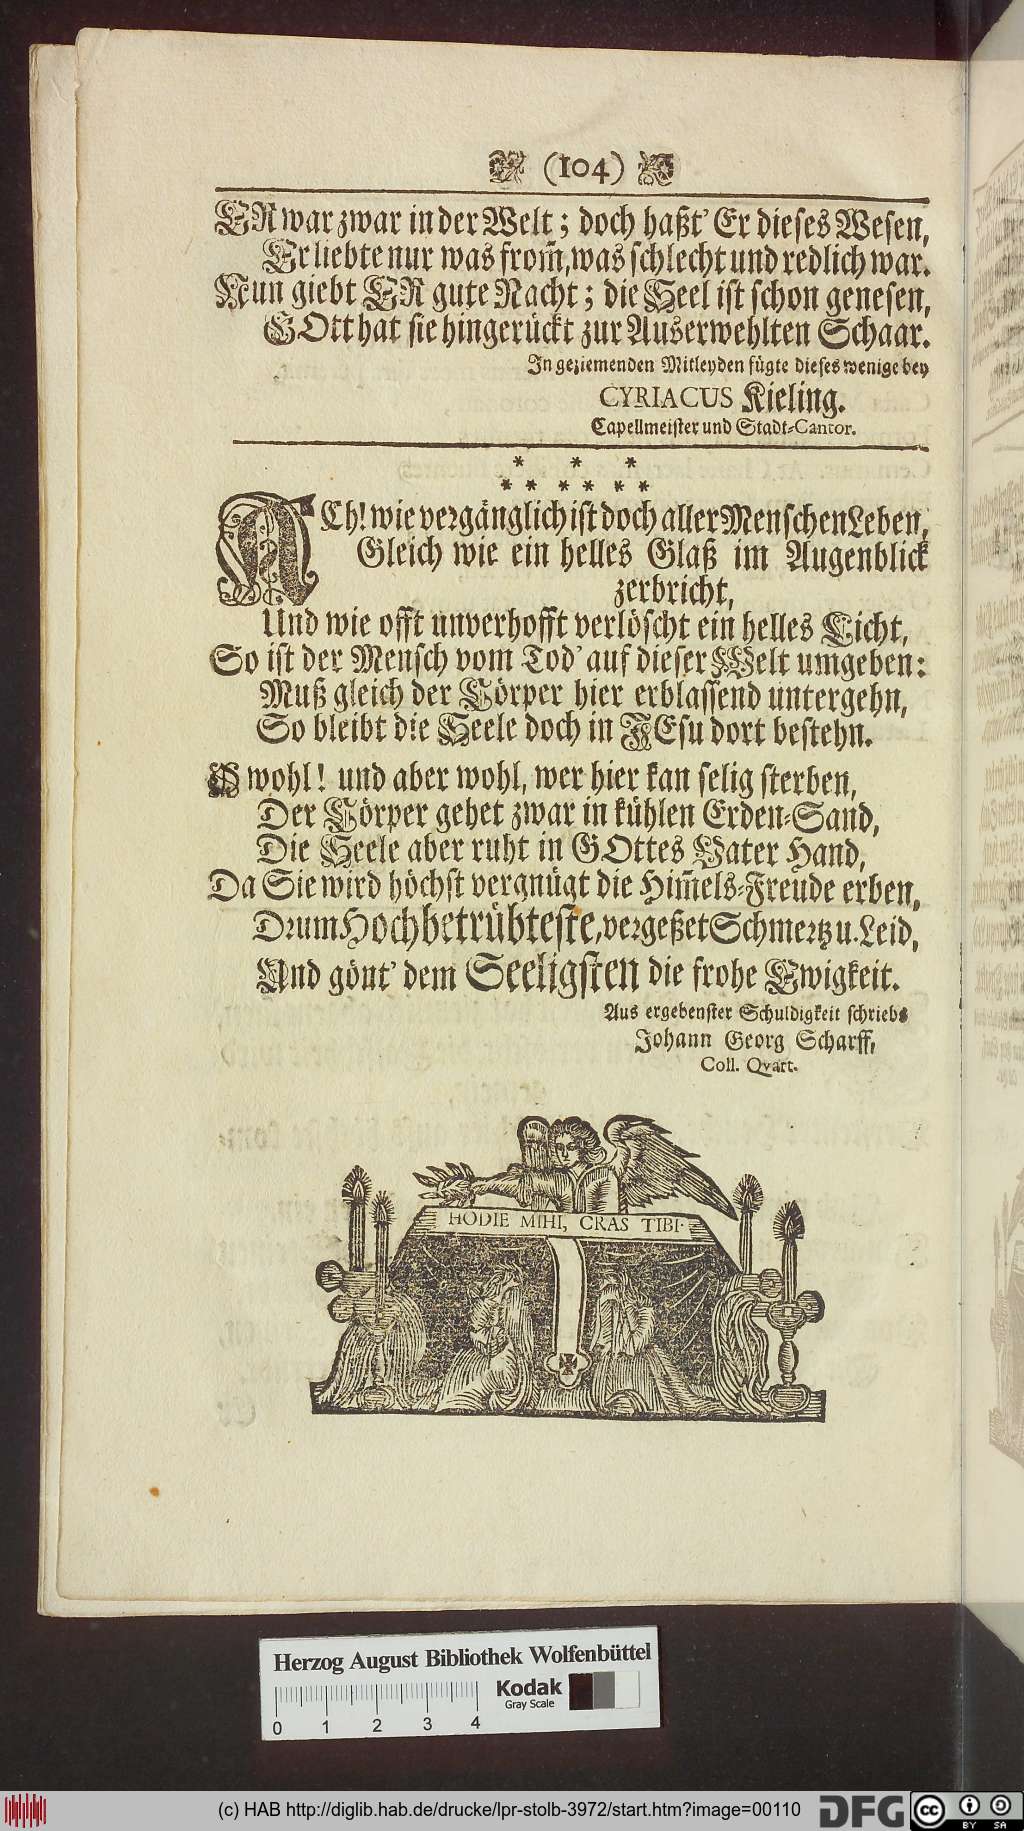 (104)
ER war zwar in der Welt; doch haßt' Er dieses Wesen,
Er liebte nur was from̃, was schlecht und redlich war.
Nun giebt ER gute Nacht; die Seel ist schon genesen,
GOtt hat sie hingerückt zur Auserwehlten Schaar.
In geziemenden Mitleyden fügte dieses wenige bey
CYRIACUS Kieling.
Capellmeister und Stadt-Cantor.
* * *
* * * * * *
ACh! wie vergänglich ist doch aller Menschen Leben,
Gleich wie ein helles Glaß im Augenblick
zerbricht,
Und wie offt unverhofft verlöscht ein helles Licht,
So ist der Mensch vom Tod' auf dieser Welt umgeben:
Muß gleich der Cörper hier erblassend untergehn,
So bleibt die Seele doch in JEsu dort bestehn.
O wohl! und aber wohl, wer hier kan selig sterben,
Der Cörper gehet zwar in kühlen Erden-Sand,
Die Seele aber ruht in GOttes Vater Hand,
Da Sie wird höchst vergnügt die Him̃els-Freude erben,
Drum Hochbetrübteste, vergeßet Schmertz u. Leid,
Und gönt' dem Seeligsten die frohe Ewigkeit.
Aus ergebenster Schuldigkeit schriebs
Johann Georg Scharff,
Coll. Qvart.
HODIE MIHI, CRAS TIBI.
Herzog August Bibliothek Wolfenbüttel
Kodak
Gray Scale
0 1 2 3 4
(c) HAB http://diglib.hab.de/drucke/lpr-stolb-3972/start.htm?image=00110
DFG
cc BY SA